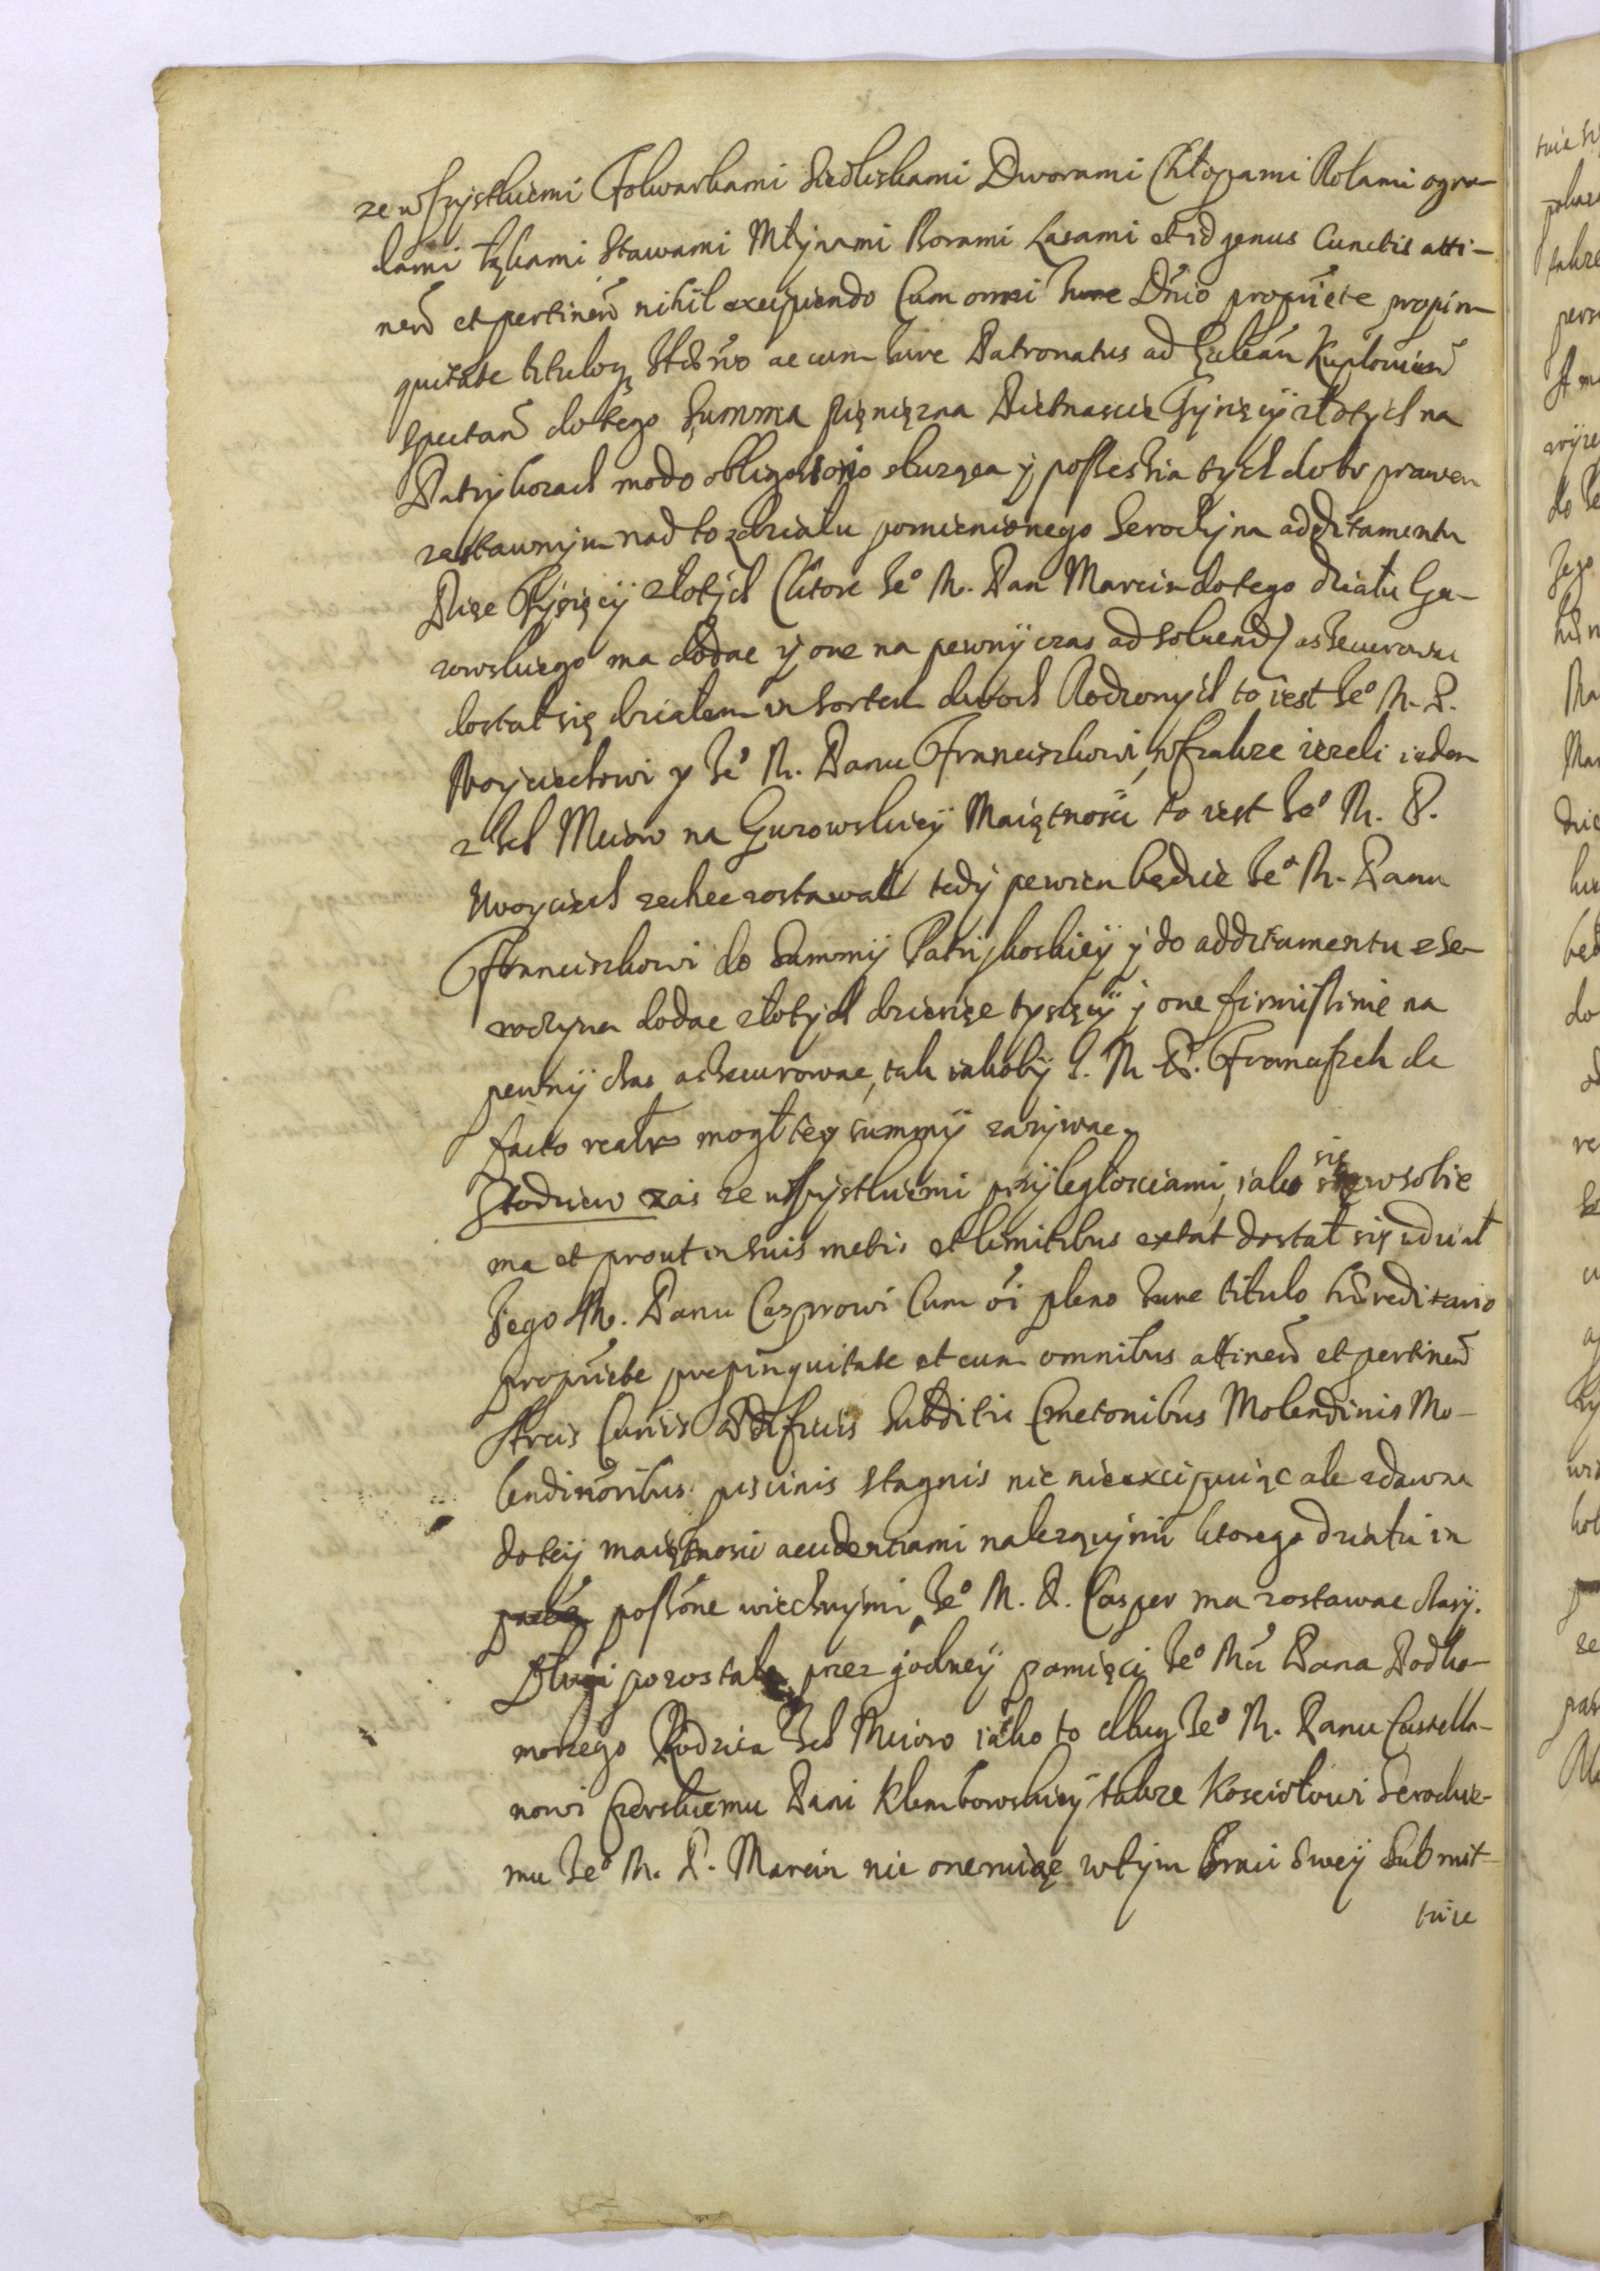 ze wszystkiemi Folwarkami Siedliskami Dworami Chłopami Rolami ogro-
dami łąkami Stawami Młynami Borami Lasami et id genus Cunctis atti-
nen̄ et pertinen̄ nihil excipiendo Cum omni Iure Dn̄io propriete propin-
quitate tituloq ac cum iure Patronatus ad
spectan̄ do tego Summa pięnięzna Pietnascie Tysięcy złotych na
Patrykozach modo obligatorio sluząca y possessia tych dobr prawem
zastawnym nad to z działu pomienionego Serochyna additamentu
Pięc Tysięcy złotych (ktore Ieo M. Pan Marcin do tego działu Gu-
zowskiego ma dodac y one na pewny czas ad solvend) assecurowac
dostał się działem in sortem dwoch Rodzonych to iest Ieo M. P.
Woyciechowi y Ieo M. Panu Franciszkowi, wszakze iezeli ieden
z Ich Mciow na Guzowskiey Maiętnosci to iest Ieo M. P.
Woyciech zechce zostawac tedy pewien będzie Ieo M. Panu
Franciszkowi do Summy Patrykoskiey y do additamentu z Se-
rochyna dodac złotych dziesięc tysięcy y one firmissime na
pewny czas assecurowac, tak iakoby I. M. P. Franciszek de
facto realr mogł tey summy zazywac.
Stodziew zas ze wszystkiemi przyległosciami, iako się w sobie
ma et prout in suis metis et limitibus extat dostał się w dział
Iego M. Panu Casprowi Cum oi pleno Iure titulo hereditario
propriete propinquitate et cum omnibus attinen̄ et pertinen̄
Areis Curiis Aedificiis Subditis Cmetonibus Molendinis Mo-
lendinoribus piscinis stagnis nic nie excipuiąc ale z dawna
do tey maiętnosci accidentiami nalezącymi ktorego działu in
poss̄one wiecznymi Ieo M. P. Casper ma zostawac czasy.
Długi pozostałe przez godney pamięci Ieo Mci Pana Podko-
morzego Rodzica Ich Mciow iako to dług Ieo M. Panu Castella-
nowi Czerskiemu Pani Klembowskiey takze Kosciołowi Serockie-
mu Ieo M. P. Marcin nic oneruiąc w tym Braci Swey Submit-
tuie